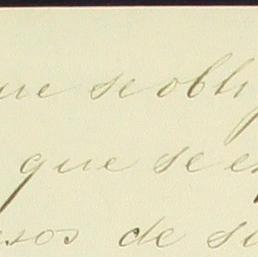 ue se obli
que se es
esos de se